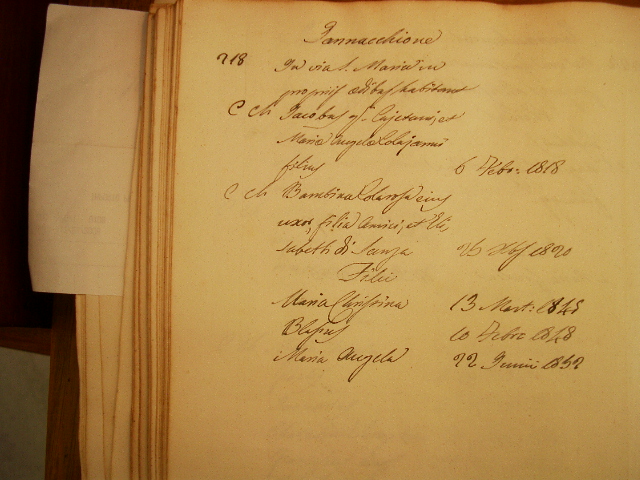 Iannacchione
218 In via S. Maria in
propriis ædibus habitant
C Ch Jacobus q.m Cajetani, et
Mariæ Angelæ Colajanni
filius 6 Febr: 1818
C Ch Bambina Colarossi ejus
uxor, filia Amici, et Eli,
sabeth di Sanza 25 Xbris 1820
Filii
Maria Christina 13 Mart: 1845
Blasius 10 Febr: 1848
Maria Angela 22 Junii 1852